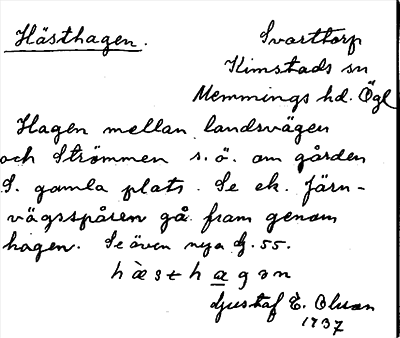 Hästhagen.
Svarttorp
Kimstads sn
Memmings hd. Ögl
Hagen mellan landsvägen
och Strömmen s.ö. om gården
S. gamla plats. Se ek. Järn-
vägsspåren gå fram genom
hagen. Se även nya bj. 55.
hæ̀sthagən
Gustaf E. Olsson
1937